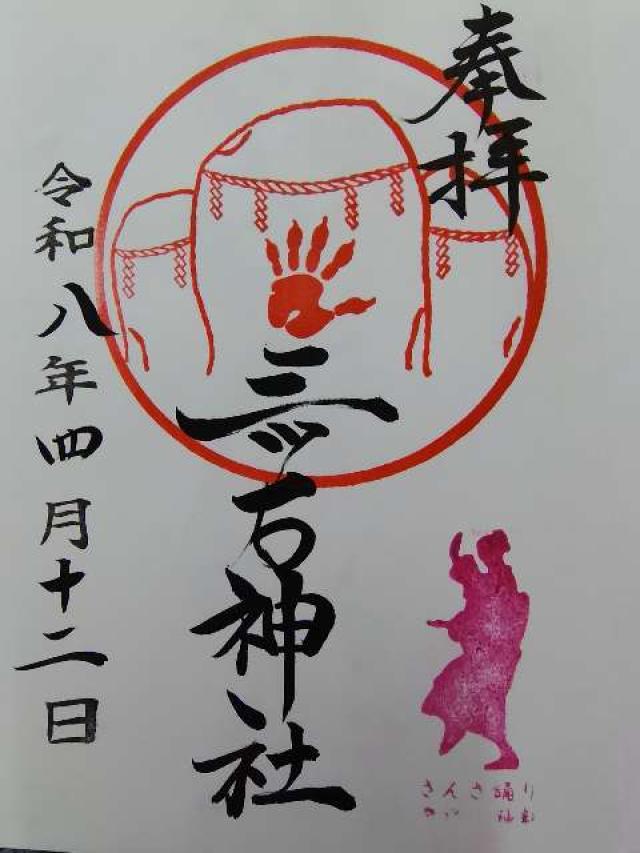 奉拝
三ツ石神社
令和八年四月十二日
さんさ踊り